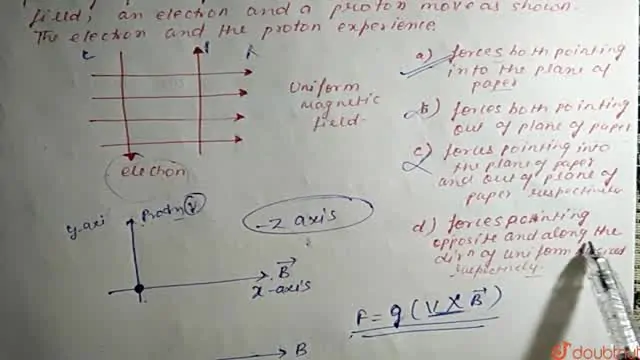 field, an electron and a proton move as shown.
The electron and the proton experience.
a) forces both pointing
into the plane of
paper
Uniform
magnetic
field.
b) forces both pointing
out of plane of paper
c) forces pointing into
the plane of paper
and out of plane of
paper respectively
electron
y-axi
Proton
-z axis
d) forces pointing
opposite and along the
dirⁿ of uniform
respectively.
B
x-axis
F = q (V X B)
B
doubtnut